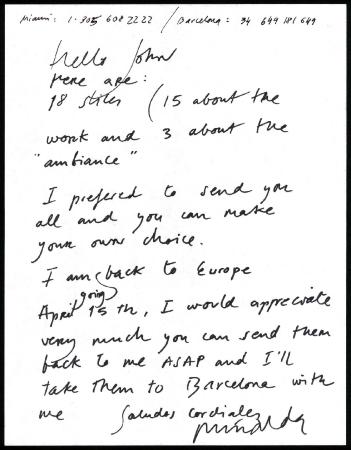 Miami: 1-305 608 2222 / Barcelona: 34 649 181 649
Hello John
Here are:
18 stiles (15 about the
work and 3 about the
"ambiance"
I prefered to send you
all and you can make
your own choice.
I am going back to Europe
April 15th, I would appreciate
very much you can send them
back to me ASAP and I'll
take them to Barcelona with
me Saludos cordiales